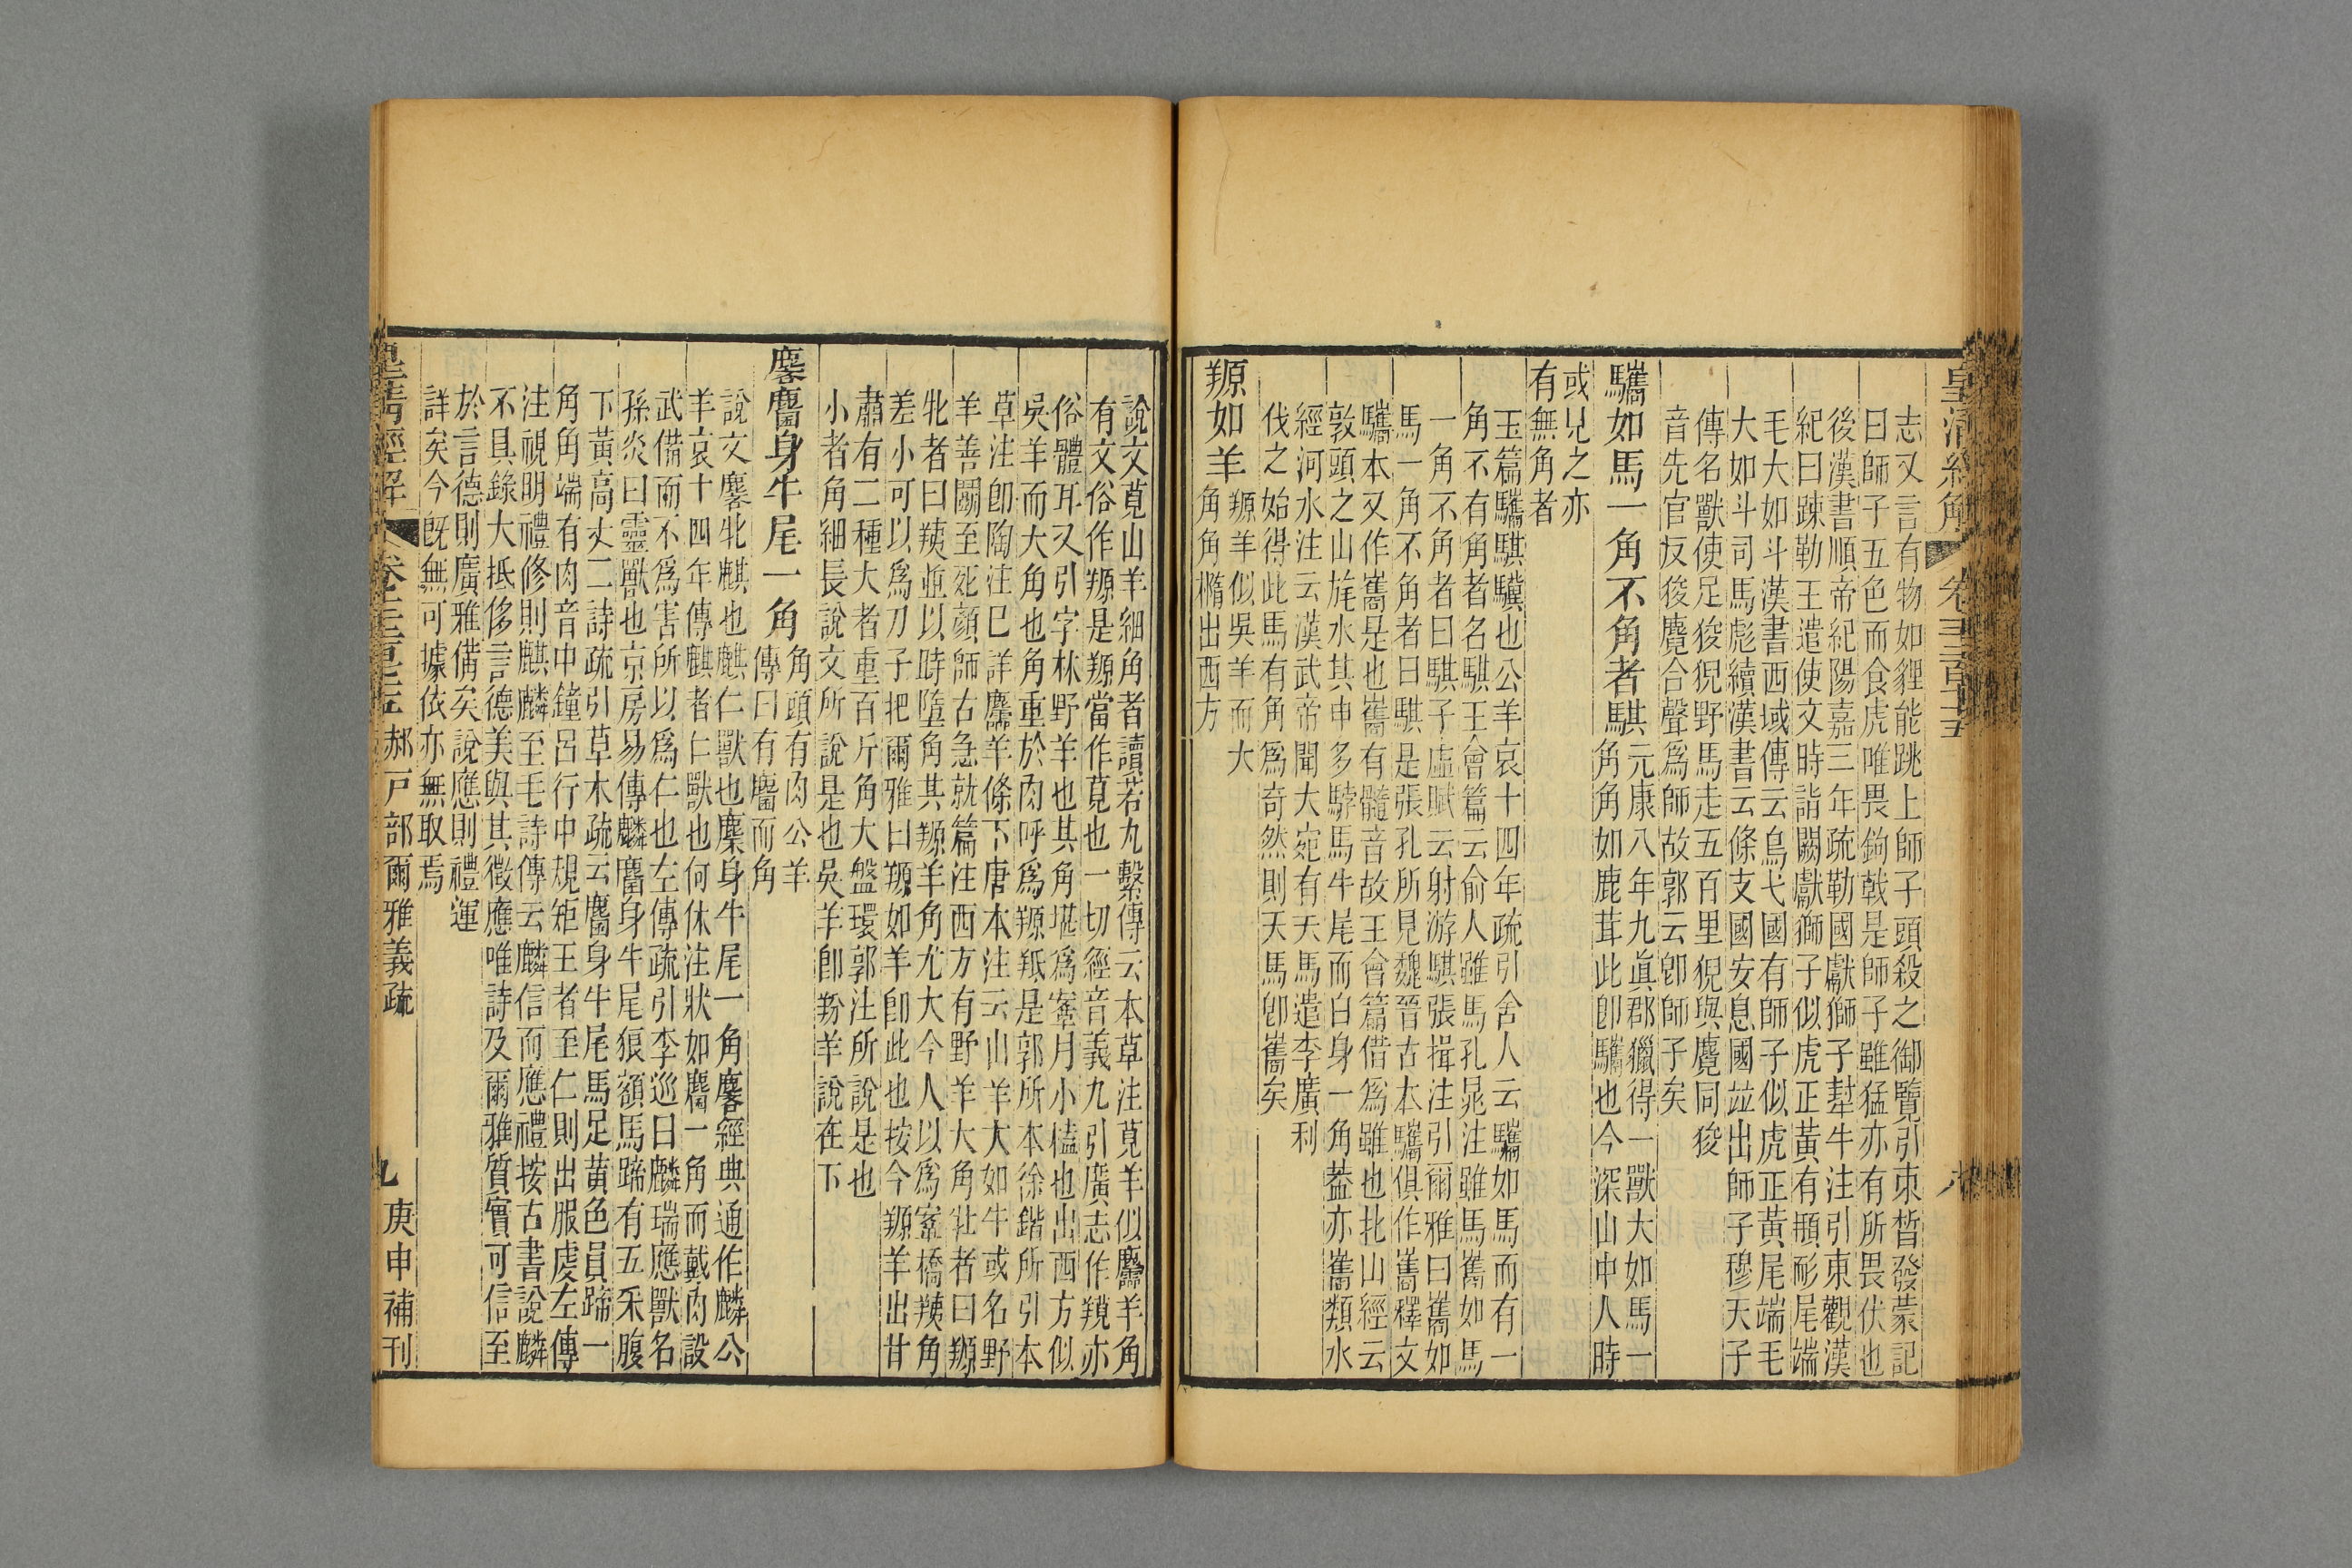 志又言有物如貍能跳上師子頭殺之御覽引束皙發蒙記
曰師子五色而食虎唯畏鉤戟是師子雖猛亦有所畏伏也
後漢書順帝紀陽嘉三年疏勒國獻獅子犎牛注引東觀漢
紀曰踈勒王遣使文時詣闕獻獅子似虎正黃有𩑺耏尾端
毛大如斗漢書西域傳云烏弋國有師子似虎正黃尾端毛
大如斗司馬彪續漢書云條支國安息國竝出師子穆天子
傳名獸使足狻猊野馬走五百里猊與麑同狻
音先官反狻麑合聲爲師故郭云卽師子矣
驨如馬一角不角者騏
元康八年九眞郡獵得一獸大如馬一
角角如鹿茸此卽驨也今深山中人時
或見之亦
有無角者
玉篇驨騏驥也公羊哀十四年疏引舍人云驨如馬而有一
角不有角者名騏王會篇云俞人雖馬孔晁注雖馬巂如馬
一角不角者曰騏子虛賦云射游騏張揖注引爾雅曰巂如
馬一角不角者曰騏是張孔所見魏晉古本驨俱作巂釋文
驨本又作巂是也巂有髓音故王會篇借爲雖也北山經云
敦頭之山旄水其中多䮀馬牛尾而白身一角葢亦巂類水
經河水注云漢武帝聞大宛有天馬遣李廣利
伐之始得此馬有角爲奇然則天馬卽巂矣
羱如羊
羱羊似吳羊而大
角角橢出西方
說文莧山羊細角者讀若丸繫傳云本草注莧羊似麢羊角
有文俗作羱是羱當作莧也一切經音義九引廣志作羦亦
俗體耳又引字林野羊也其角堪爲鞌月小榼也出西方似
吳羊而大角也角重於肉呼爲羱羝是郭所本徐鍇所引本
草注卽陶注已詳麢羊條下唐本注云山羊大如牛或名野
羊善鬭至死顏師古急就篇注西方有野羊大角牡者曰羱
牝者曰羠竝以時墮角其羱羊角尤大今人以爲鞌橋羠角
差小可以爲刀子把爾雅曰羱如羊卽此也按今羱羊出甘
肅有二種大者重百斤角大盤環郭注所說是也
小者角細長說文所說是也吳羊卽羒羊說在下
麐麕身牛尾一角
角頭有肉公羊
傳曰有麕而角
說文麐牝麒也麒仁獸也麋身牛尾一角麐經典通作麟公
羊哀十四年傳麒者仁獸也何休注狀如麕一角而戴肉設
武備而不爲害所以爲仁也左傳疏引李巡曰麟瑞應獸名
孫炎曰靈獸也京房易傳麟麕身牛尾狼額馬蹄有五采腹
下黃高丈二詩疏引草木疏云麕身牛尾馬足黃色員蹄一
角角端有肉音中鐘呂行中規矩王者至仁則出服虔左傳
注視明禮修則麒麟至毛詩傳云麟信而應禮按古書說麟
不具錄大抵侈言德美與其徵應唯詩及爾雅質實可信至
於言德則廣雅備矣說應則禮運
詳矣今旣無可據依亦無取焉
皇清經解 卷 郝戸部爾雅義疏 九 庚申補刊